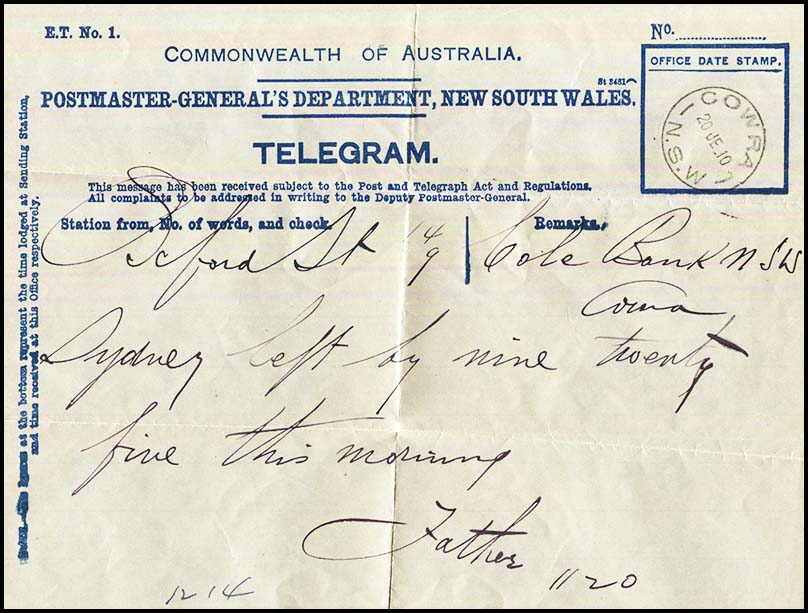 E.T. No. 1.
No.
COMMONWEALTH OF AUSTRALIA.
OFFICE DATE STAMP.
St 3481
POSTMASTER-GENERAL'S DEPARTMENT, NEW SOUTH WALES.
COWRA
20 JE.10
N.S.W
TELEGRAM.
This message has been received subject to the Post and Telegraph Act and Regulations.
All complaints to be addressed in writing to the Deputy Postmaster-General.
Station from, No. of words, and check.
Remarks.
St 14/9
Cole Bank N S W
Cowra
Sydney left by nine twenty
five this morning
Father
1120
1214
at the bottom represent the time lodged at Sending Station,
and time received at this Office respectively.